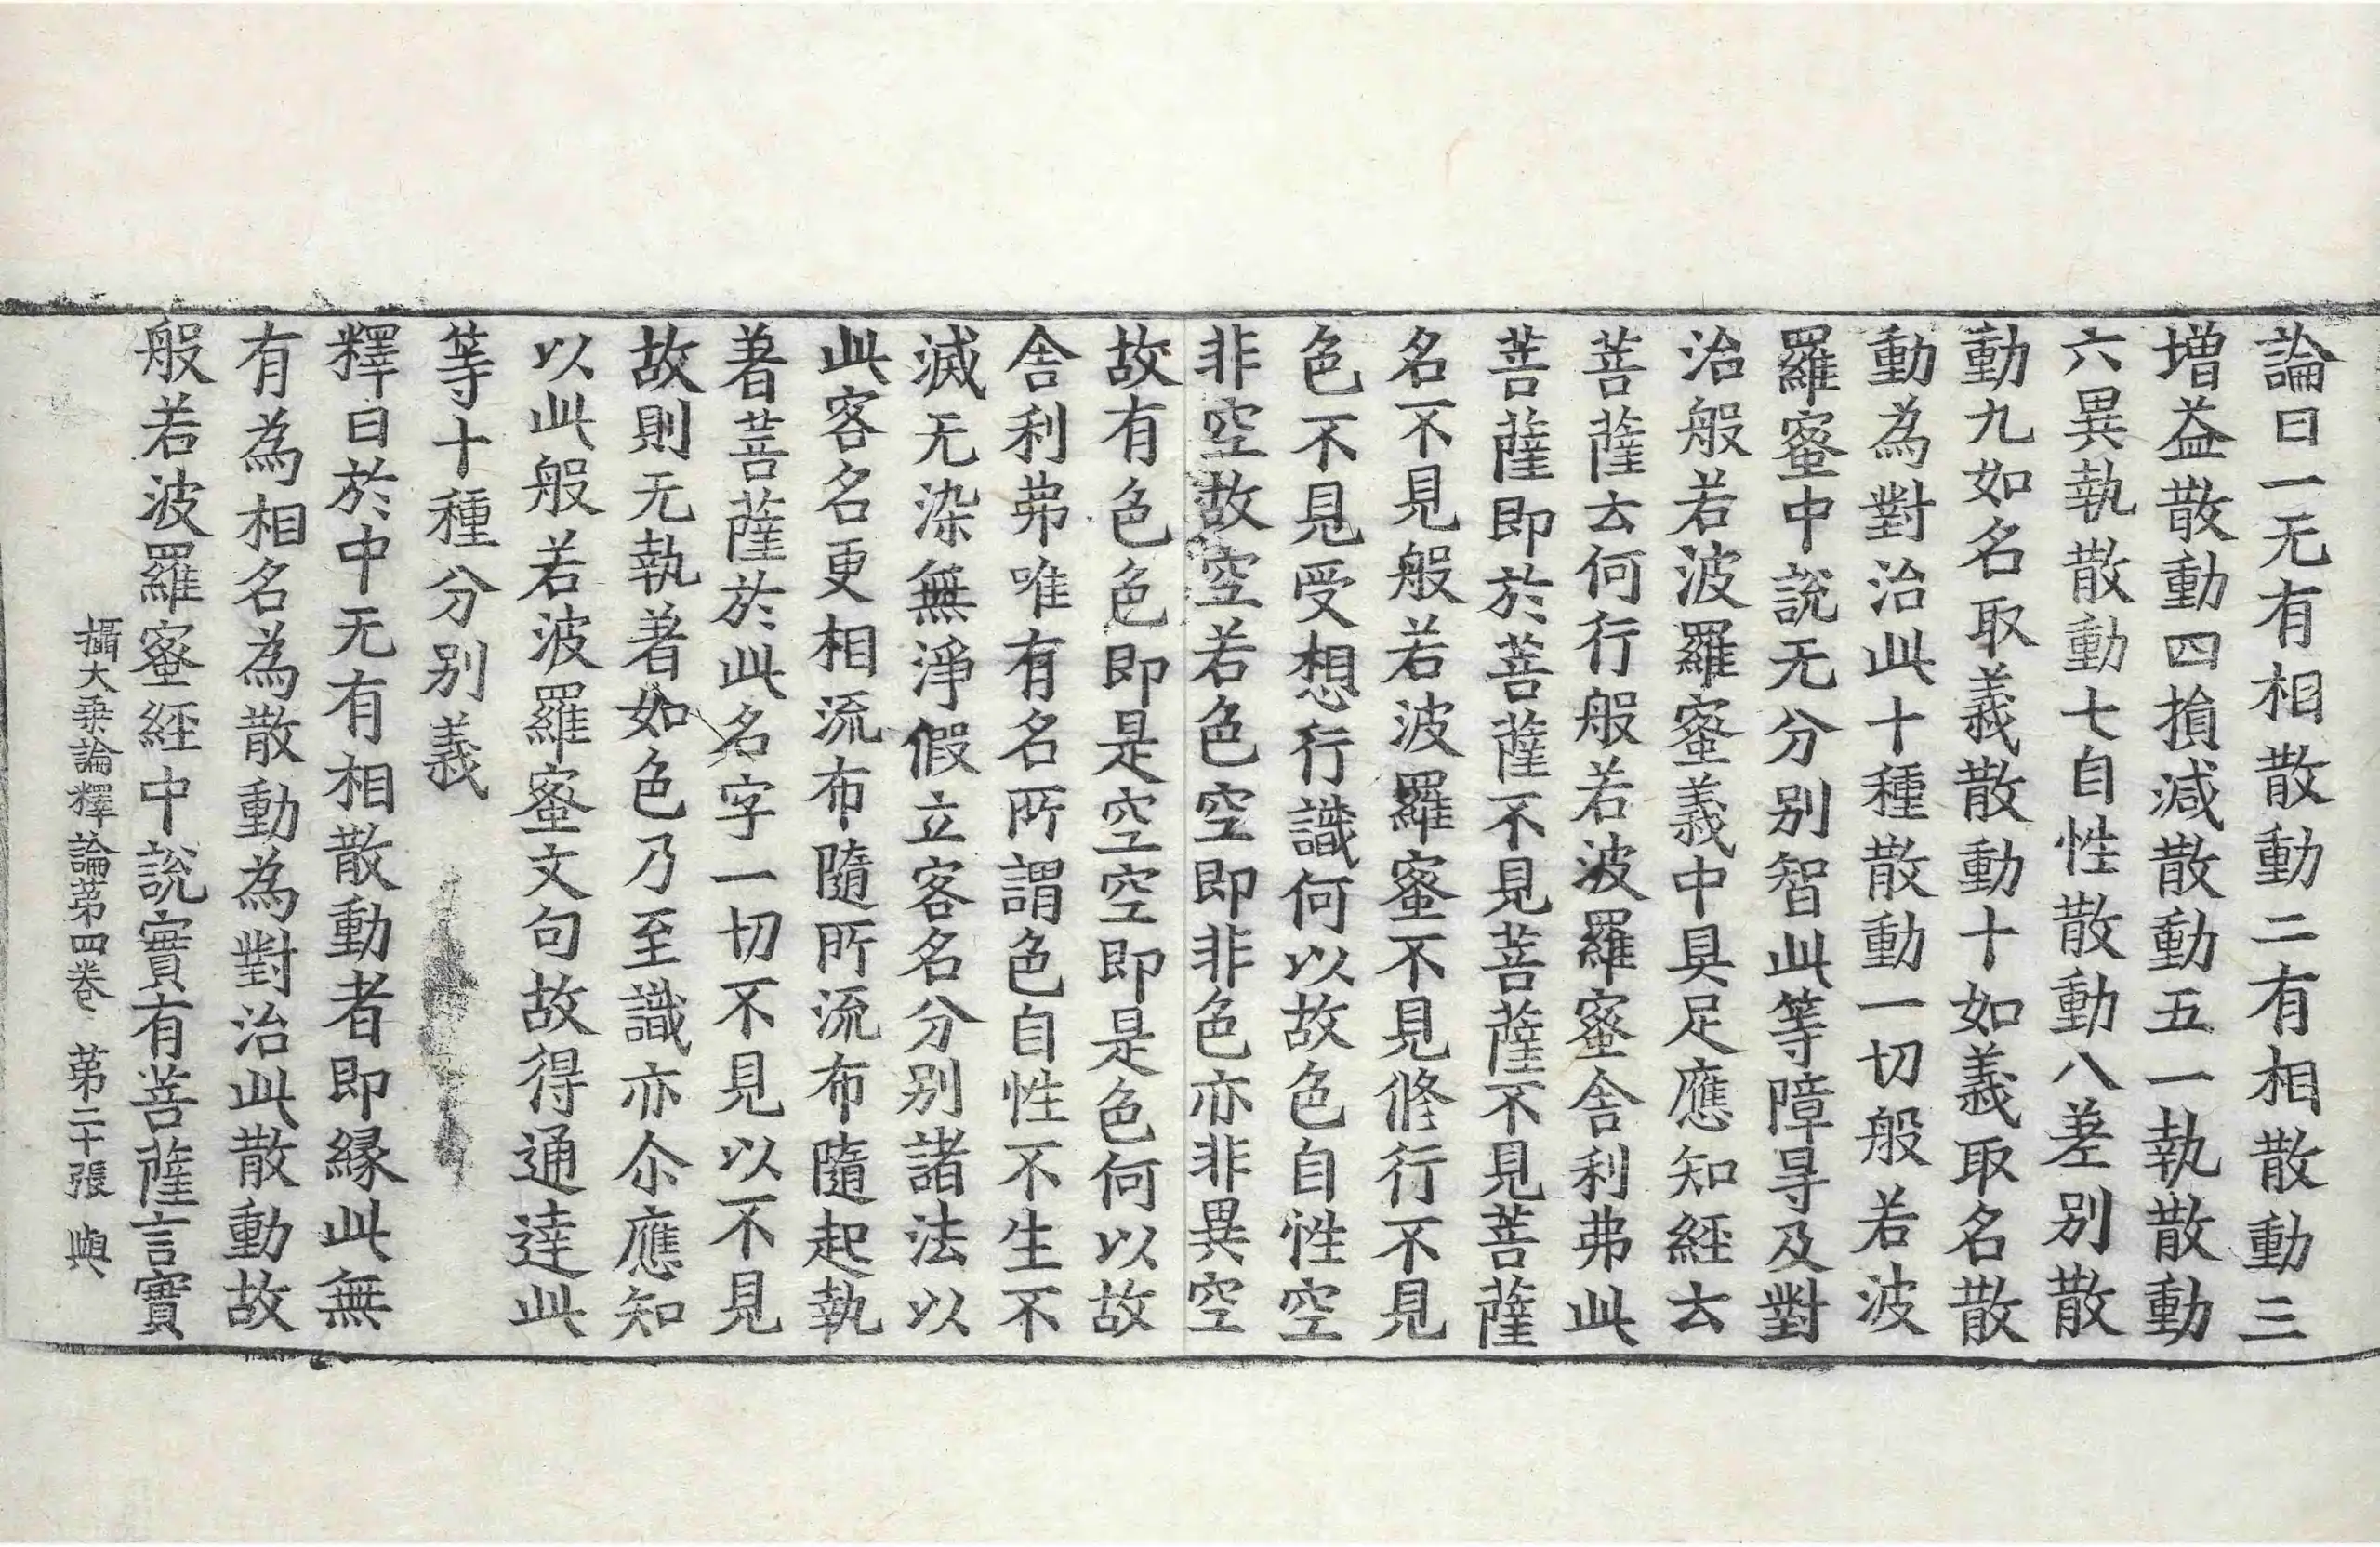 論曰一无有相散動二有相散動三
増益散動四損減散動五一執散動
六異執散動七自性散動八差別散
動九如名取義散動十如義取名散
動為對治此十種散動一切般若波
羅蜜中說无分別智此等障㝵及對
治般若波羅蜜義中具足應知經云
菩薩云何行般若波羅蜜舍利弗此
菩薩即於菩薩不見菩薩不見菩薩
名不見般若波羅蜜不見脩行不見
色不見受想行識何以故色自性空
非空故空若色空即非色亦非異空
故有色色即是空空即是色何以故
舍利弗唯有名所謂色自性不生不
滅无染無淨假立客名分別諸法以
此客名更相流布隨所流布隨起執
著菩薩於此名字一切不見以不見
故則无執著如色乃至識亦尒應知
以此般若波羅蜜文句故得通達此
等十種分別義
釋曰於中无有相散動者即縁此無
有為相名為散動為對治此散動故
般若波羅蜜經中說實有菩薩言實
攝大乗論釋論苐四卷 苐二十張 與